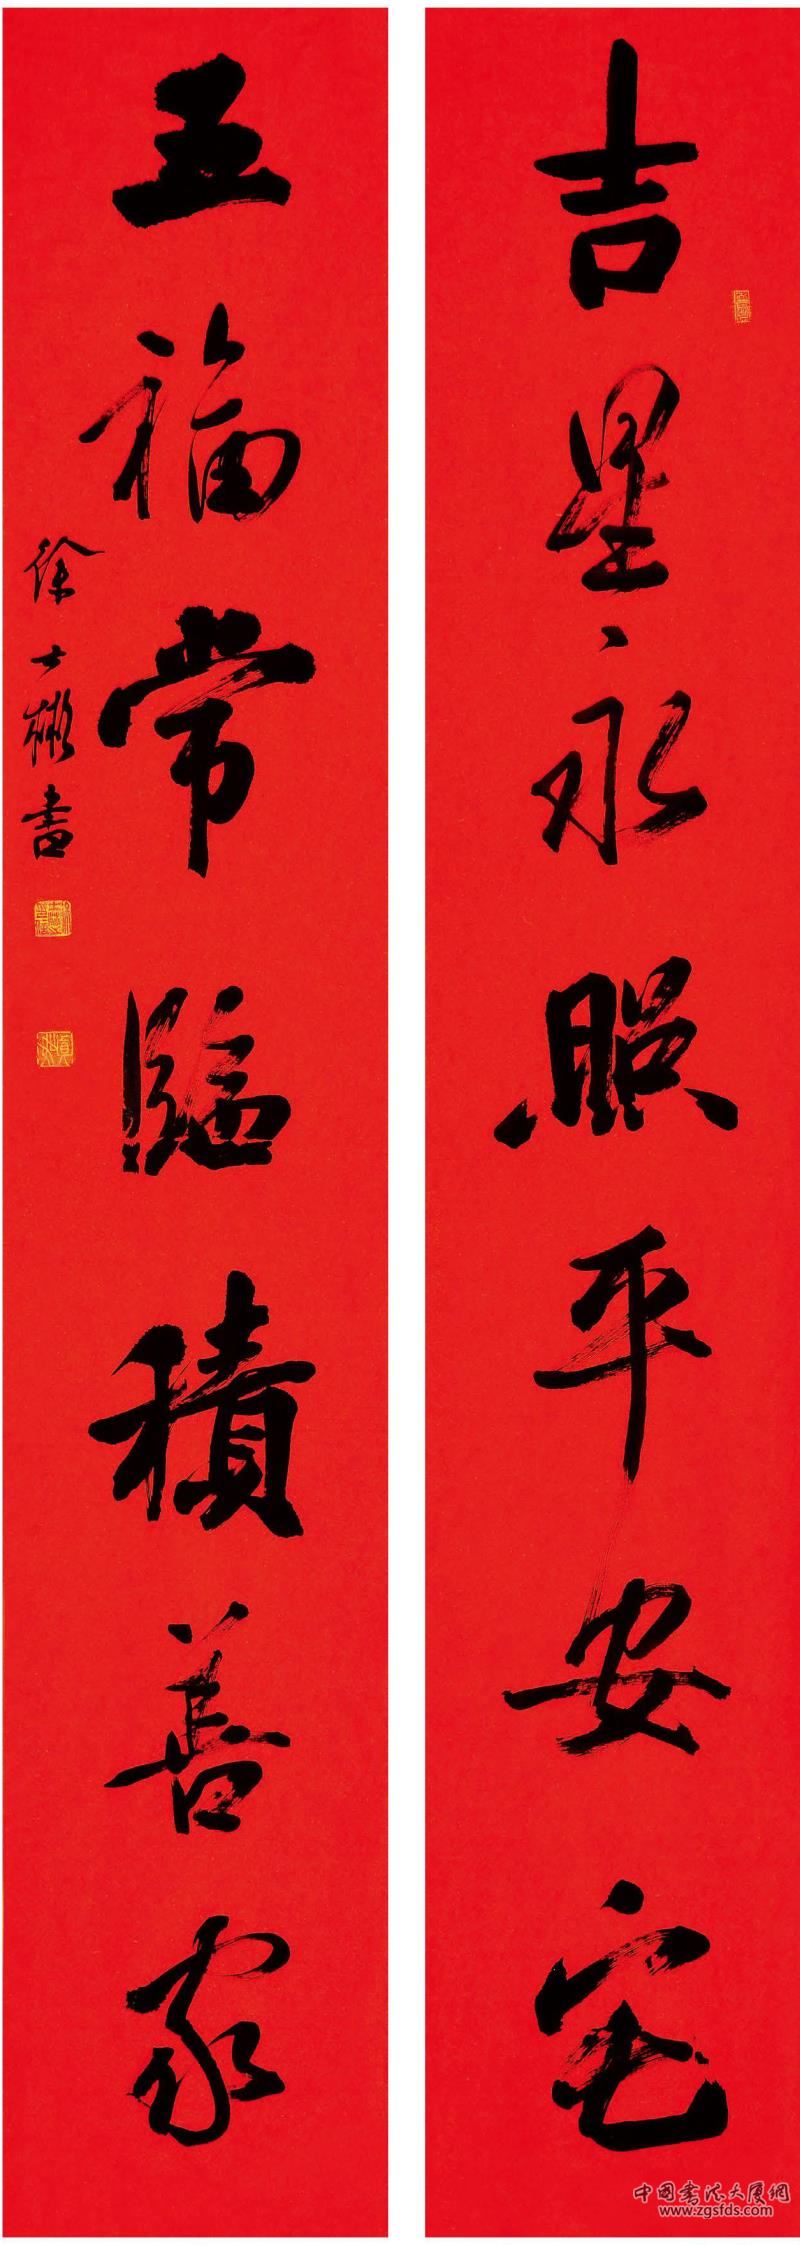 吉星永照平安宅
五福常臨積善家
徐士彬書
中国书法大厦網
www.zgsfds.com